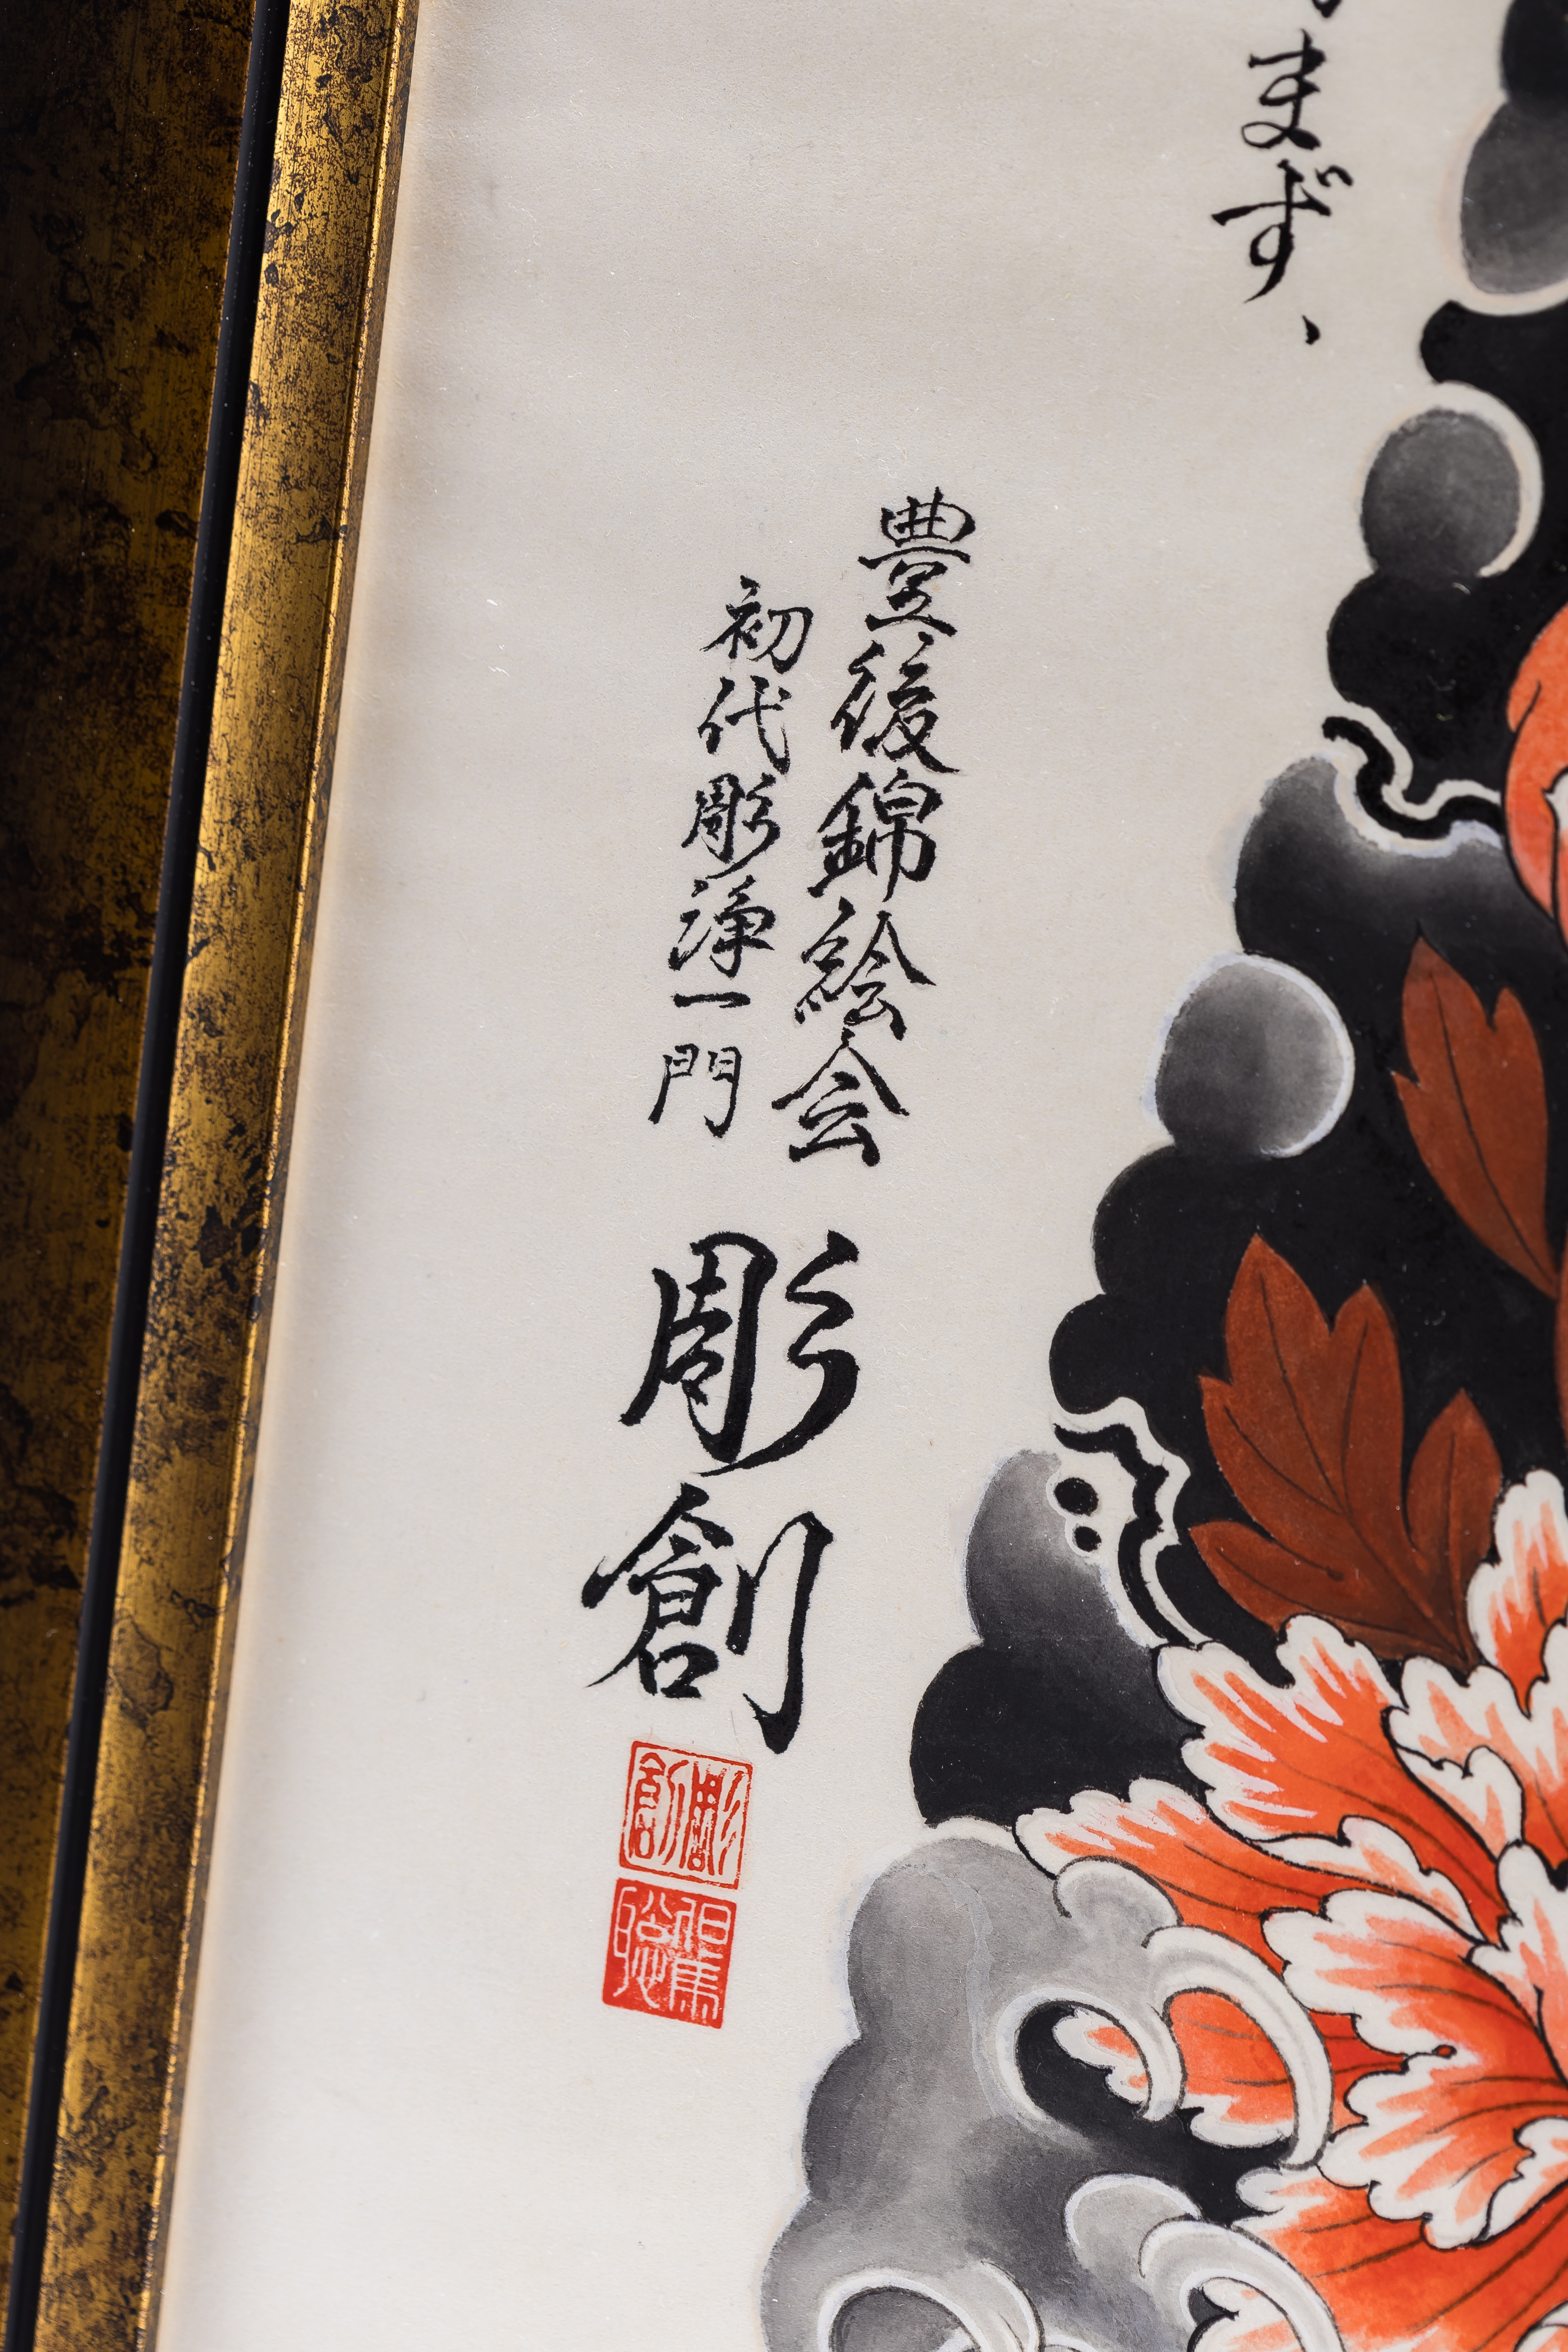 まず、
豊後錦絵会
初代彫浄一門
彫創
彫創